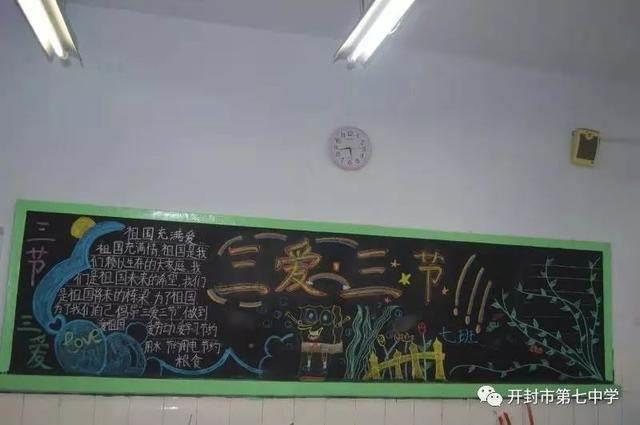 三节
三爱
祖国充满爱
祖国充满情,祖国是我
们赖以生存的大家庭,我
们是祖国未来的希望,我们
是祖国将来的栋梁,为了祖国
为了我们自己倡导“三爱三节”做到
爱祖国
爱劳动爱学习节约
用水 节约用电节约
粮食
三爱·三节!!!
love
七班
开封市第七中学